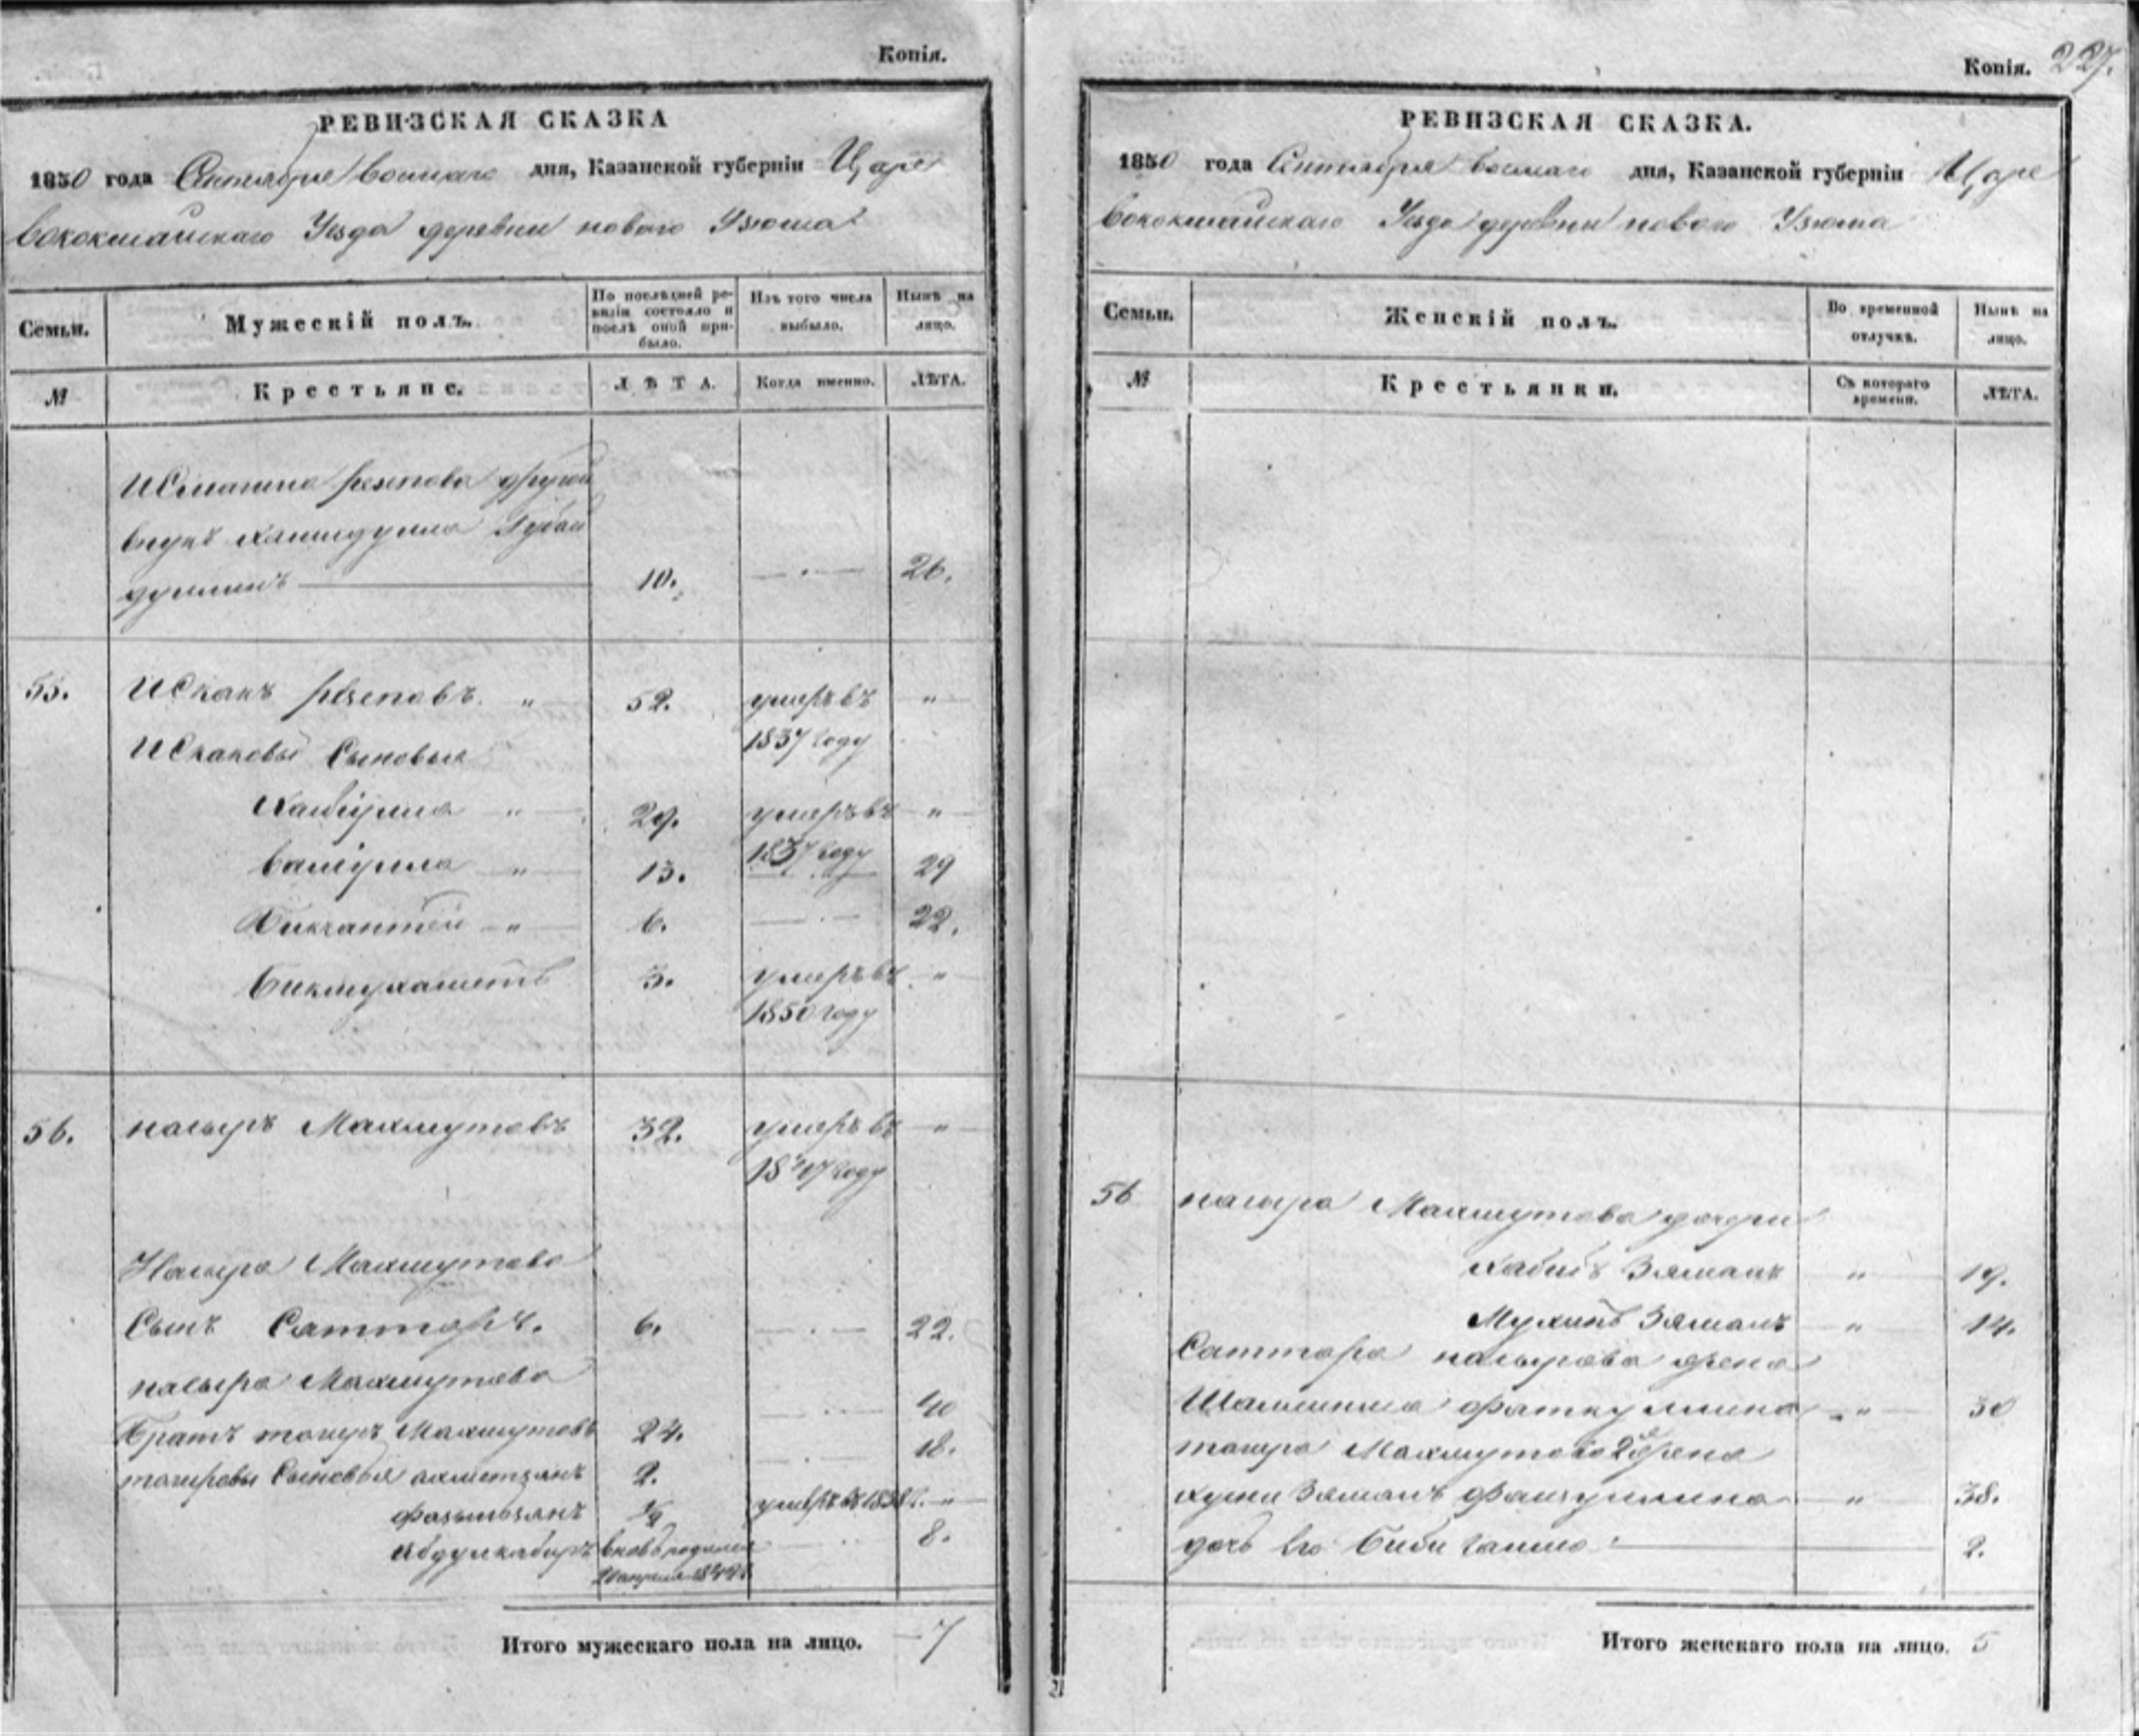 Копія.
РЕВИЗСКАЯ СКАЗКА
1850 года Сентября восмаго дня, Казанской губерніи Царе
вококшайскаго Уезда деревни новаго Узюма
Семьи.
Мужескій полъ.
По послѣдней ре-
визіи состояло и
послѣ оной при-
было.
Изъ того числа
выбыло.
Нынѣ на
лицо.
№
Крестьяне.
ЛѢТА.
Когда именно.
ЛѢТА.
резепова другой
внукъ Губай
дуллинъ
10.
26.
55.
Искакъ резеповъ. "
52.
умеръ въ
1837 году
"
Искаковы Сыновья
Хабiулла "
29.
умеръ въ
1837 году
"
Валiулла "
13.
29
Бикчантей "
6.
22.
Бикмухаметъ
3.
умеръ въ
1850 году
"
56.
насыръ Махмутовъ
32.
умеръ въ
1847 году
"
Насыра Махмутова
Сынъ Саттаръ.
6.
22.
насыра Махмутова
Братъ тагиръ Махмутовъ
24.
40
тагировы Сыновья ахметзянъ
2.
18.
фазылзянъ
умеръ въ 1838 г.
"
Абдулкабиръ
вновь родился
8.
Итого мужескаго пола на лицо.
7
Копія.
227.
РЕВИЗСКАЯ СКАЗКА.
1850 года Сентября восмаго дня, Казанской губерніи Царе
вококшайскаго Уезда деревни новаго Узюма
Семьи.
Женскій полъ.
Во временной
отлучкѣ.
Нынѣ на
лицо.
№
Крестьянки.
Съ котораго
времени.
ЛѢТА.
56
насыра Махмутова дочери
Хабибъ Зяманъ " 19.
Зяманъ " 14.
Саттара насырова жена
фаткуллина " 30
тагира Махмутова 2я жена
Зяманъ " 38.
дочь Его Биби 2.
Итого женскаго пола на лицо. 5